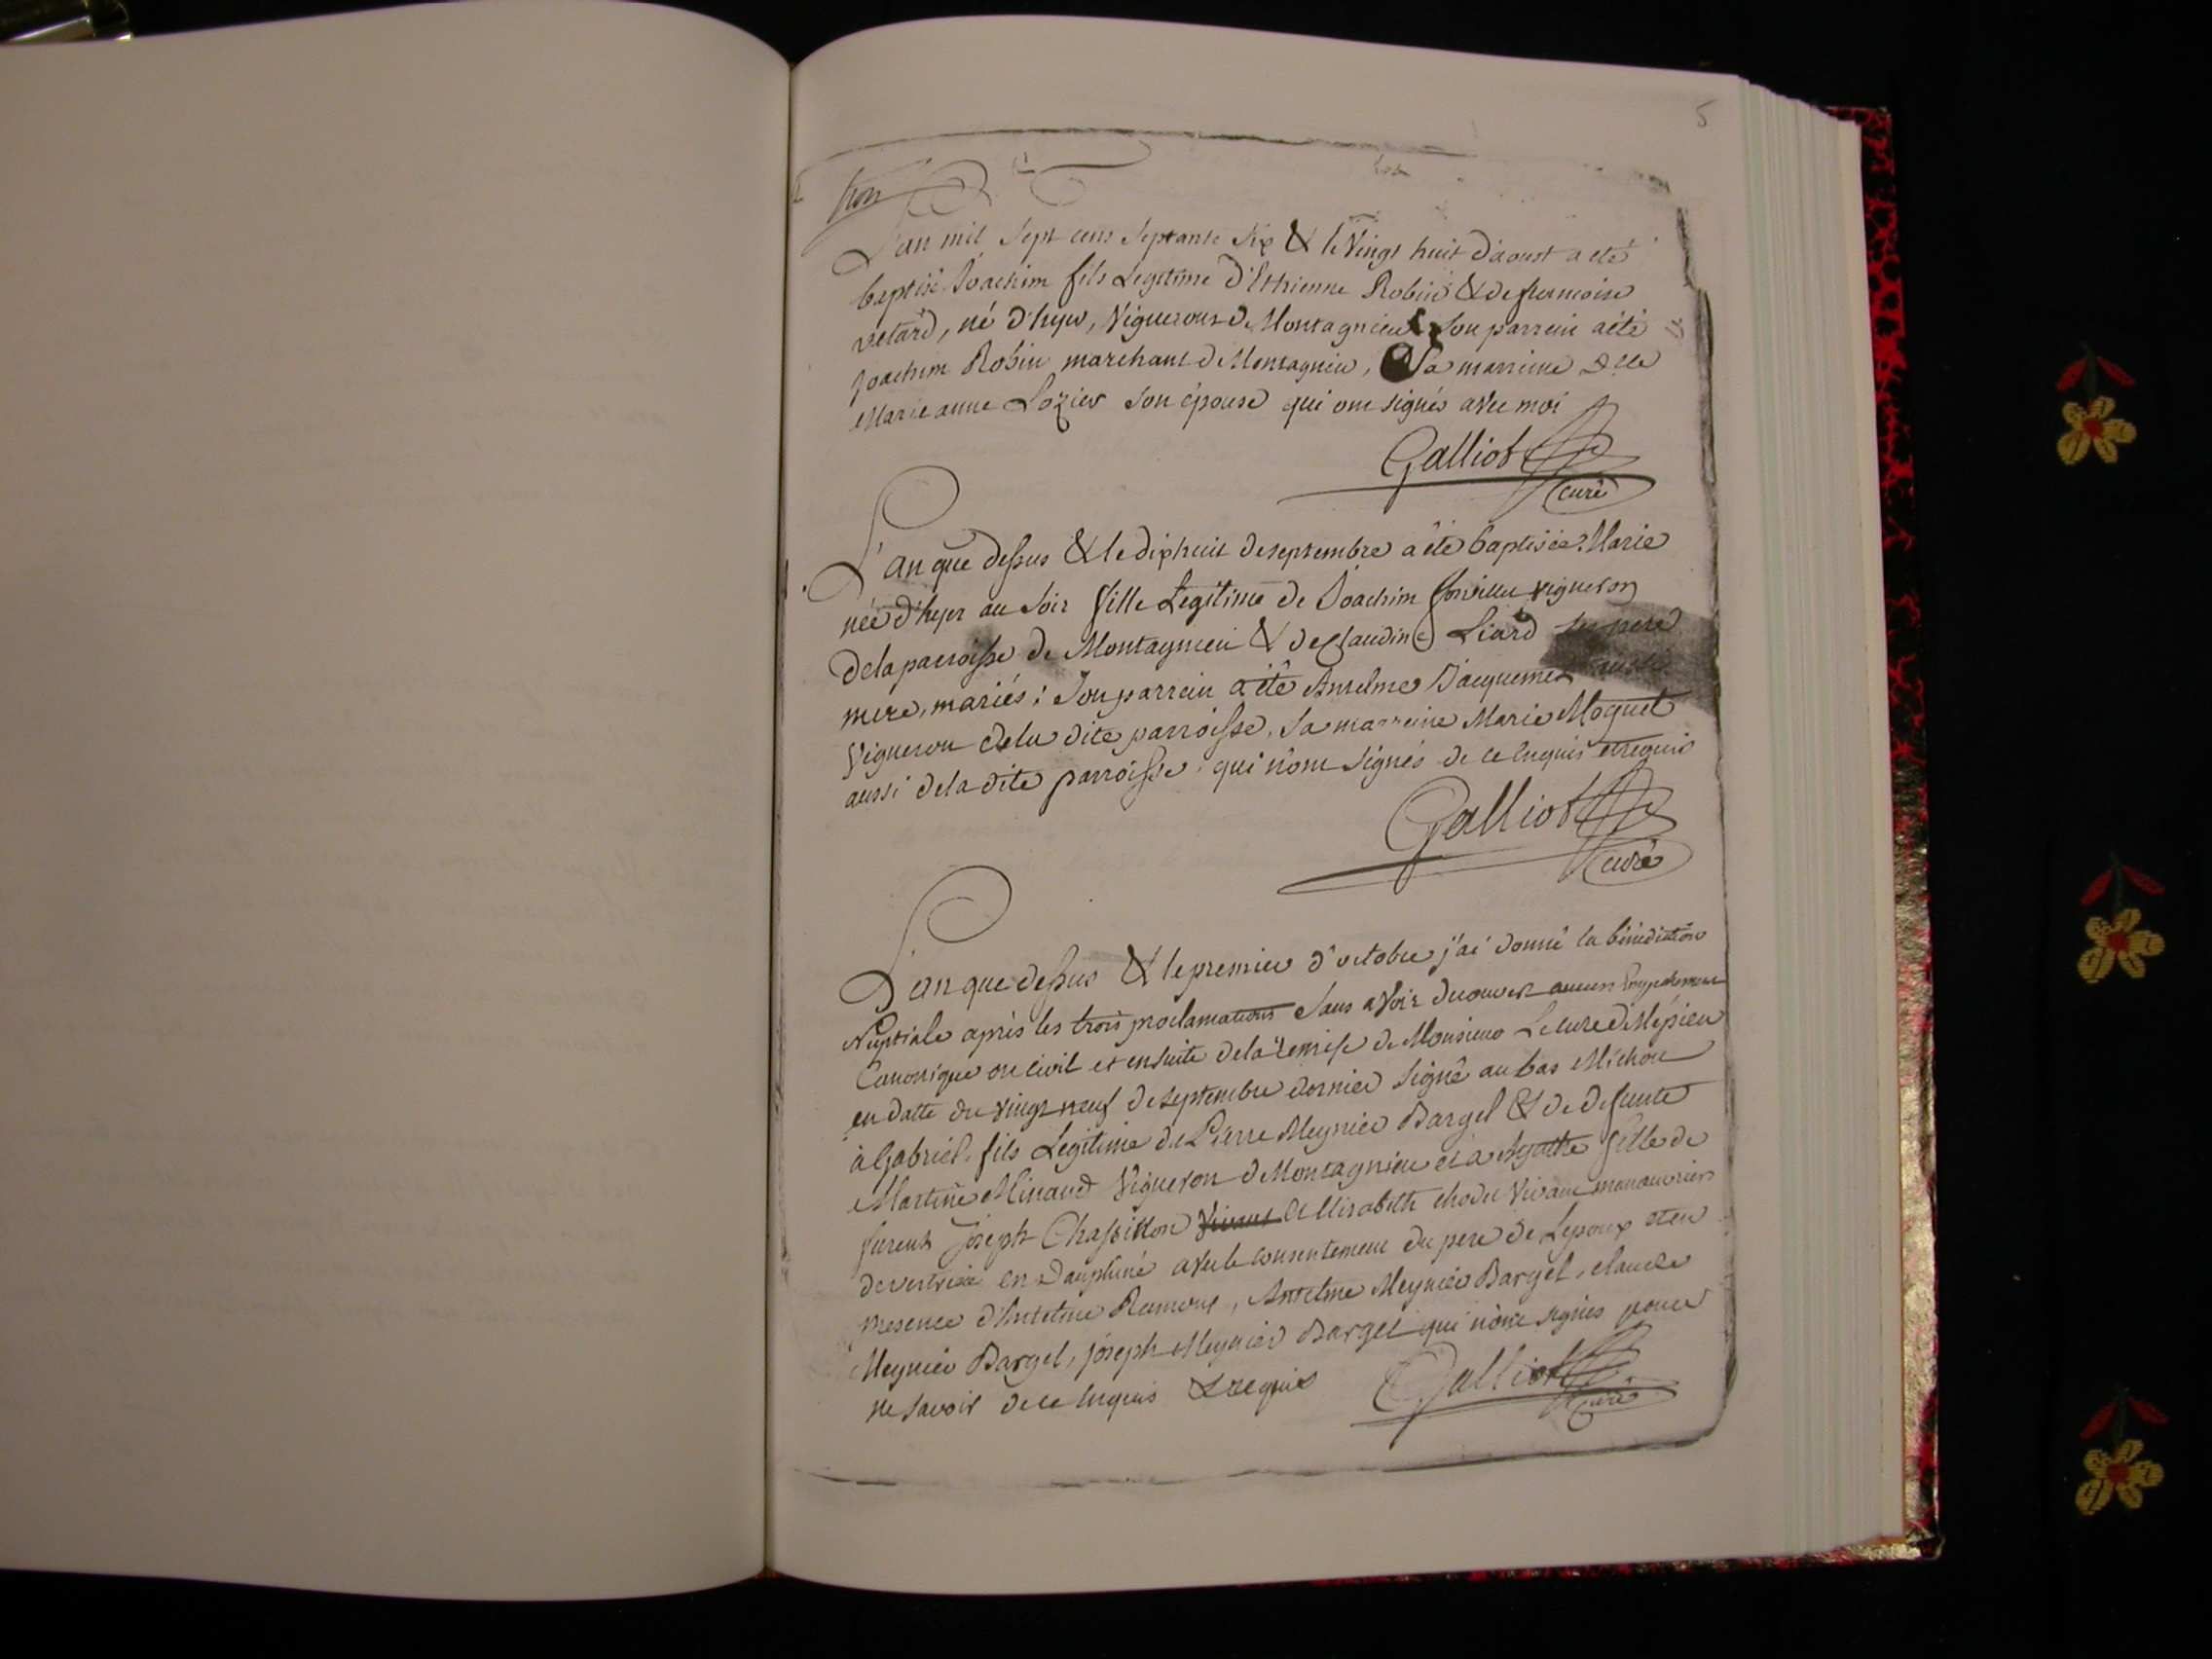 5
L'an mil sept cens septante six & le Vingt huit d'aoust a eté
baptisé Joachim fils Legitime d'Ethienne Robin & de françoise
retard, né d'hyer, Vignerons de Montagnieu son parrein a été
Joachim Robin marchant de Montagnieu, Sa marrine Dlle
Marie anne Lozier son épouse qui ont signés avec moi
Galliot
curé
L'an que dessus & le dixhuit de septembre a été baptisée Marie
née d'hyer au soir fille Legitime de Joachim vigneron
de la parroisse de Montagnieu & de Claudine Liard ses pere
mere, mariés; son parrain a été Anselme Jacquemet
Vigneron de la dite parroisse, sa marreine Marie Moquet
aussi de la dite parroisse qui n'ont signés de ce enquis et requis
Galliot
curé
L'an que dessus & le premier d'octobre j'ai donné la bénédiction
Nuptiale après les trois proclamations sans avoir decouvert aucun Empechement
Canonique ou civil et ensuite de la remise de Monsieur Le curé de Mépieu
en datte du vingt neuf de septembre dernier signé au bas Michou
à Gabriel fils Legitime de Pierre Meynier Bargel & de defunte
Martine Minaud Vigneron de Montagnieu et a Agathe fille de
furent Joseph Chassitton vivant & Elisabeth vivant manouvriers
de en Dauphiné avec le consentement du pere de Lepoux et en
presence d'Antelme Rumoux, Anselme Meynier Bargel, claude
Meynier Bargel, joseph Meynier Bargel qui n'ont signés pour
ne savoir de ce enquis & requis Galliot
curé